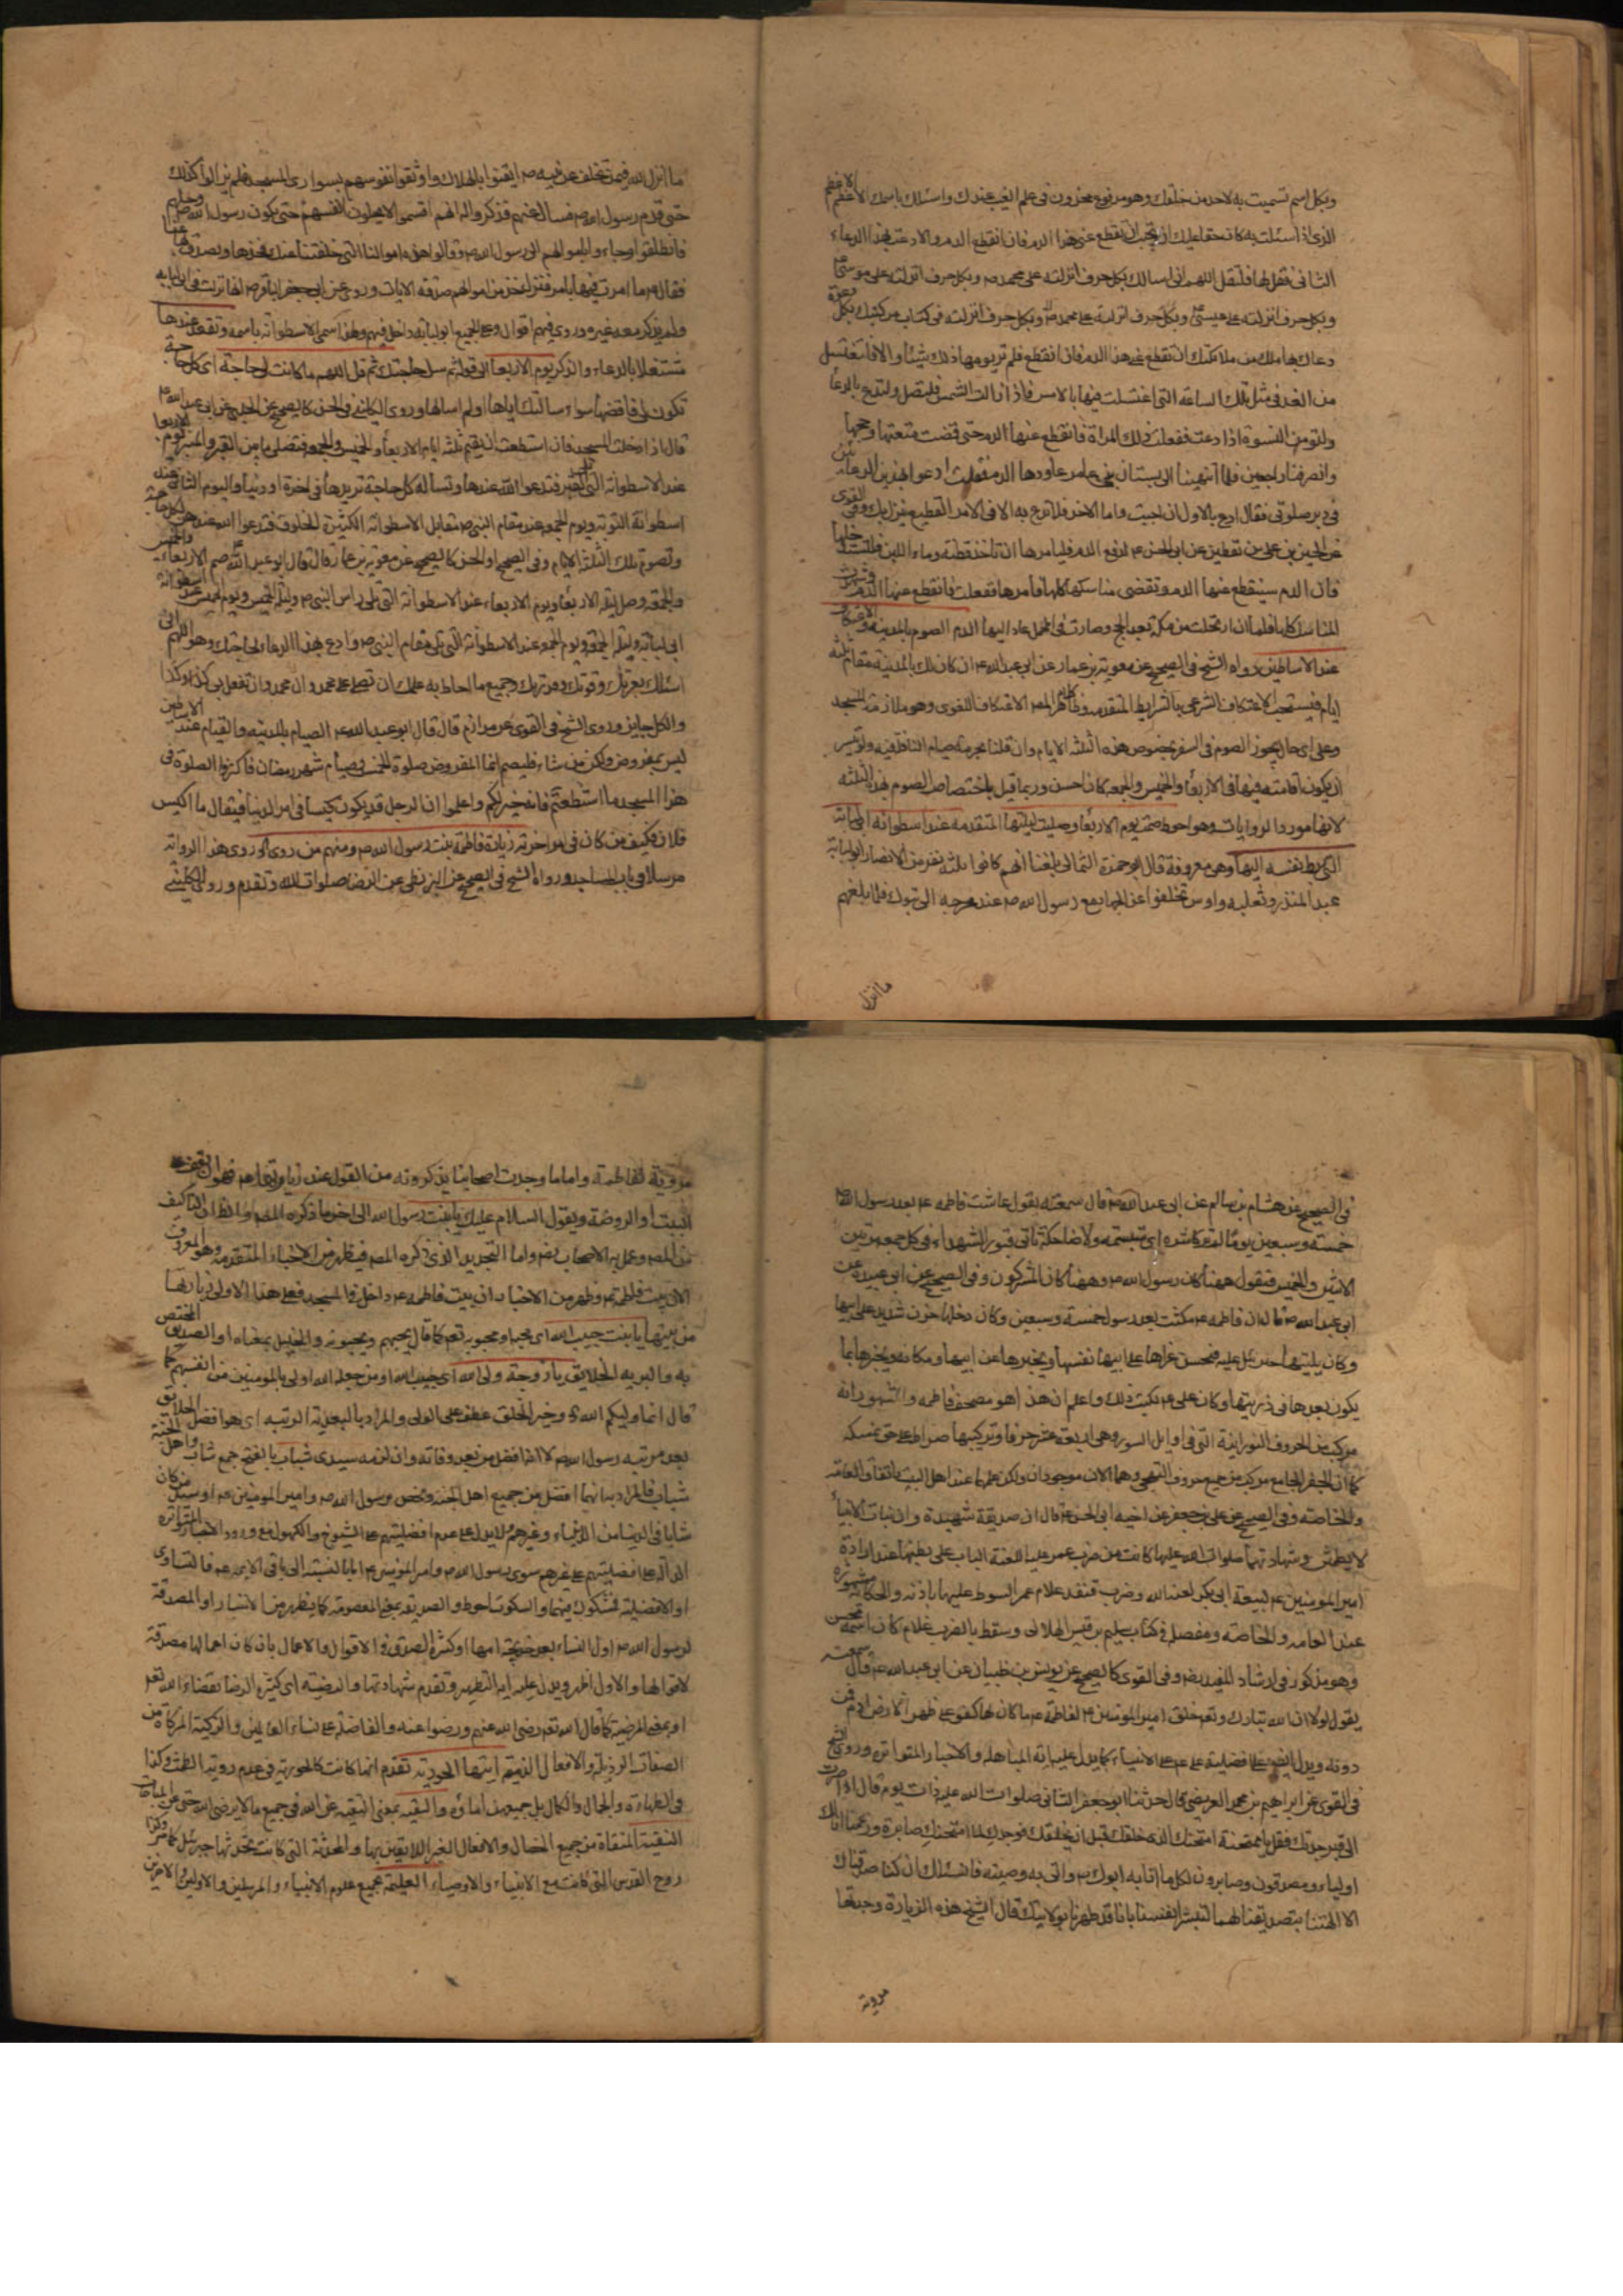 وبكل اسم تسميت به لاحد من خلقك وهو مرفوع مخزون فى علم الغيب عندك واسئلك باسمك الاعظم الاعظم
الذى اذا سئلت به كان حقا عليك ان تجيب ان تقطع عنى هذا الدم فان انقطع الدم والا دعت بهذا الدعاء
الثانى فقل لها فلتقل اللهم انى اسالك بكل حرف انزلته على محمد ص وبكل حرف انزلته على موسى ع
وبكل حرف انزلته على عيسى ع وبكل حرف انزلته على محمد ص وبكل حرف انزلته فى كتاب من كتبك وبكل دعوة
دعاك بها ملك من ملائكتك ان تقطع عنى هذا الدم فان انقطع فلم تر يومها ذلك شيئا والا فلتغتسل
من الغد فى مثل تلك الساعة التى اغتسلت فيها بالامس فاذا زالت الشمس فلتصل ولتدع بالدعا
ولتؤمن النسوة اذا دعت ففعلت ذلك المراة فانقطع عنها الدم حتى قضت متعتها وحجها
وانصرفنا راجعين فلما انتهينا الى بستان بنى عامر عاودها الدم فقلت ادعو بهذين الدعائين
فى دبر صلوتى فقال ادع بالاول ان احببت واما الاخر فلا تدع به الا فى الامر الفظيع ينزل بك وفى القوى
عن الحسين بن على بن يقطين عن ابى الحسن ع لرفع الدم فليامرها ان تاخذ قطنة وماء اللبن فلتستدخلها
فان الدم سينقطع عنها الدم وتقضى مناسكها كلها فامرها ففعلت فانقطع عنها الدم وشهدت
المناسك كلها فلما ان ارتحلت من مكة بعد الحج وصارت فى المحمل عاد اليها الدم الصوم بالمدينة والاعتكاف
عند الاساطين رواه الشيخ فى الصحيح عن معوية بن عمار عن ابى عبد الله ع ان كان لك بالمدينة مقام ثلثه
ايام فيستحب الاعتكاف الشرعى بالشرايط المتقدمة وظاهر كلام المص الاعتكاف اللغوى وهو ملازمة المسجد
وعلى اى حال يجوز الصوم فى السفر بخصوص هذه الثلثه الايام وان قلنا بحرمة صيام النافلة فيه ولو تيسر
ان يكون اقامته فيها فى الاربعا والخميس والجمعه كان احسن وربما قيل باختصاص الصوم بهذه الثلثه
لانها مورد الروايات وهو احوط صمت يوم الاربعا وصليت ليلتها المتقدمه عند اسطوانة ابى لبابه
التى ربط نفسه اليها وهى معروفة قال ابو حمزة الثمالى بلغنا انهم كانوا ثلثه نفر من الانصار ابو لبابة
عبد المنذر وثعلبه واوس تخلفوا عن رسول الله ص عند مخرجه الى تبوك فلما بلغهم
ما انزل
ما انزل الله فيمن تخلف عن نبيه ص ايقنوا بالهلاك واوثقوا انفسهم بسوارى المسجد فلم يزالوا كذلك
حتى قدم رسول الله ص فسال عنهم فذكروا له انهم اقسموا لا يحلون انفسهم حتى يكون رسول الله ص يحلهم
فانطلقوا وجاءوا باموالهم الى رسول الله ص وقالوا هذه اموالنا التى خلفتنا عنك فخذها وتصدق بها عنا
فقال ص ما امرت فيها بامر فنزل خذ من اموالهم صدقه الايات وروى عن ابى جعفر الباقر ع انها نزلت فى ابى لبابه
ولم يذكر معه غيره وروى فيهم اقوال وعلى الجميع ابو لبابه داخل فيهم ولهذا سمى الاسطوانة باسمه وتقعد عندها
مشتغلا بالدعاء والذكر يوم الاربعا الى قوله ثم سل حاجتك ثم قل اللهم ما كانت لى حاجة اى كل حاجة
تكون لى فاقضها سواء سالتك اياها او لم اسالها وروى الكلينى فى الحسن كالصحيح عن الحلبى عن ابى عبد الله ع
قال اذا دخلت المسجد فان استطعت ان تقيم ثلثه ايام الاربعا والخميس والجمعه فتصلى ما بين القبر والمنبر يوم الاربعا
عند الاسطوانه التى تلى القبر فتدعوا الله عندها وتساله كل حاجة تريدها فى اخرة او دنيا واليوم الثانى عند
اسطوانة التوبة ويوم الجمعه عند مقام النبى ص مقابل الاسطوانة الكثيرة الخلوق فتدعوا الله عندهن لكل حاجة
وتصوم تلك الثلثه الايام وفى الصحيح او الحسن كالصحيح عن معوية بن عمار قال قال ابو عبد الله ع صم الاربعاء والخميس
والجمعه وصل ليله الاربعا ويوم الاربعاء عند الاسطوانة التى تلى راس النبى ص وليله الخميس ويوم الخميس عند اسطوانة
ابى لبابه وليله الجمعه ويوم الجمعه عند الاسطوانة التى تلى مقام النبى ص وادع بهذا الدعاء لحاجتك وهو اللهم انى
اسئلك بعزتك وقوتك وقدرتك وجميع ما احاط به علمك ان تصلى على محمد وال محمد وان تفعل بى كذا وكذا
والكل جايز وروى الشيخ فى القوى عن مرازم قال قال ابو عبد الله ع الصيام بالمدينه والقيام عند الاساطين
ليس بمفروض ولكن من شاء فليصم انما المفروض صلوة الخمس وصيام شهر رمضان فاكثروا الصلوة فى
هذا المسجد ما استطعتم فانه خير لكم واعلموا ان الرجل قد يكون كيسا فى امر الدنيا فيقال ما اكيس
فلان فكيف من كان فى امر اخرته زيارة فاطمة بنت رسول الله ص ومنهم من روى روى هذا الرواية
مرسلا فى باب المساجد ورواه الشيخ فى الصحيح عن البزنطى عن الرضا صلوات الله وتقدم وروى الكلينى
فى الصحيح عن هشام بن سالم عن ابى عبد الله ع قال سمعته يقول عاشت فاطمه ع بعد رسول الله ص
خمسة وسبعين يوما لم تر كاشرة اى متبسمة ولا ضاحكة تاتى قبور الشهداء فى كل جمعه مرتين
الاثنين والخميس فتقول ههنا كان رسول الله ص وههنا كان المشركون وفى الصحيح عن ابى عبيدة عن
ابى عبد الله ع قال ان فاطمه ع مكثت بعد رسول الله خمسة وسبعين وكان دخلها حزن شديد على ابيها
وكان ياتيها جبرئيل عليه فيحسن عزاها على ابيها ويطيب نفسها ويخبرها عن ابيها ومكانه ويخبرها بما
يكون بعدها فى ذريتها وكان على ع يكتب ذلك واعلم ان هذا هو مصحف فاطمه والمشهور انه
مركب من الحروف النورانية التى فى اوايل السور وهى اربعة عشر حرفا وتركيبها صراط على حق نمسكه
كما ان الجفر الجامع مركب من جميع حروف التهجى وهما الان موجودان ولكن علمهما عند اهل البيت باتفاق العامه
والخاصة وفى الصحيح عن على بن جعفر عن اخيه ابى الحسن ع قال ان فاطمة صديقة شهيدة وان بنات الانبياء
لا يطمثن وشهادتها صلوات الله عليها كانت من ضرب عمر عليه اللعنة الباب على بطنها عند ارادة
امير المومنين ع لبيعة ابى بكر لعنه الله وضرب قنفذ غلام عمر السوط عليها باذنه والحكاية مشهورة
عند العامه والخاصة ومفصله فى كتاب سليم بن قيس الهلالى وسقط بالضرب غلام كان اسمه محسن
وهو مذكور فى ارشاد المفيد رض وفى القوى كالصحيح عن يونس بن ظبيان عن ابى عبد الله ع قال سمعته
يقول لولا ان الله تبارك وتعالى خلق امير المومنين ع لفاطمة ع ما كان لها كفو على ظهر الارض من ادم فمن
دونه ويدل ايضا على افضلية على ع على الانبياء كما يدل عليه اية المباهله والاخبار المتواتره وروى الشيخ
فى القوى عن ابراهيم بن محمد العريضى قال حدثنا ابو جعفر الثانى صلوات الله عليه ذات يوم قال اذا صرت
الى قبر جدتك فقل يا ممتحنة امتحنك الذى خلقك قبل ان يخلقك فوجدك لما امتحنك صابرة وزعمنا انا لك
اولياء ومصدقون وصابرون لكل ما اتانا به ابوك ص واتى به وصيه فانا نسئلك ان كنا صدقناك
الا الحقتنا بتصديقنا لهما لنبشر انفسنا بانا قد طهرنا بولايتك قال الشيخ هذه الزيارة وجدتها
مروية
مروية لفاطمة واما ما وجدت اصحابنا يذكرونه من القول عند زيارتها ع فهو ان تقف على
البيت او الروضة ويقول السلام عليك يا بنت رسول الله الى اخر ما ذكره المص والظاهر ان التاليف
من المص وعمل به الاصحاب رض واما التحديد الذى ذكره المص فيظهر من الاخبار المتقدمه وهو المعروف
الان ببيت فاطمه ع وظهر من الاخبار ان بيت فاطمه ع داخل فى المسجد فعلى هذا الاولى زيارتها
من بيتها يا بنت حبيب الله اى محبه او محبوبه تعالى كما قال يحبهم ويحبونه والخليل بمعناه او الصديق المختص
به والبريه الخلايق يا زوجة ولى الله اى حبيب الله او من جعله الله اولى بالمومنين من انفسهم كما
قال انما وليكم الله وخير الخلق عطف على الولى والمراد بالبعدية الرتبه اى هو افضل الخلايق
بعد مرتبه رسول الله ص لا انه افضل من بعد وفاته وان لزمه سيدى شباب بالفتح جمع شاب واهل الجنة
شباب فالمراد بهما افضل من جميع اهل الجنه وخص برسول الله ص وامير المومنين ع او سيدى من كان
شابا فى الدنيا من الانبياء وغيرهم ولا يدل على عدم افضليتهم على الشيوخ والكهول مع ورود الاخبار المتواتره
الدالة على افضليتهم على غيرهم سوى رسول الله ص وامير المومنين ع اما بالنسبه الى باقى الائمه ع فالتساوى
او الافضلية مشكوك فيهما والسكوت احوط والصديقه بمعنى المعصومة كما يظهر من الاخبار او المصدقة
لرسول الله ص اول النساء بعد خديجة امها او كثيرة الصدق فى الاقوال والاعمال بان كان اعمالها مصدقة
لاقوالها والاول اظهر ويدل عليه اية التطهير وتقدم شهادتها والرضية اى كثيرة الرضا بقضاء الله تعالى
او بمعنى المرضية كما قال الله تعالى رضى الله عنهم ورضوا عنه والفاضلة على نساء العالمين والزكية المزكاة من
الصفات الرذيلة والافعال الذميمة ايتها الحورية تقدم انها كانت كالحورية فى عدم روية الطمث وكذا
فى الطهارة والجمال والكمال بل جميعهن اماؤه والتقيه بمعنى التقيه عن الله فى جميع ما لا يرضى الله حتى عن المباحات
النقية المنقاة من جميع الخصال والافعال الغير اللايقين بها والمحدثة التى كانت يحدثها جبرئيل كما مر وكذا
روح القدس التى كانت مع الانبياء والاوصياء العليمة بجميع علوم الانبياء والمرسلين والاولين والاخرين